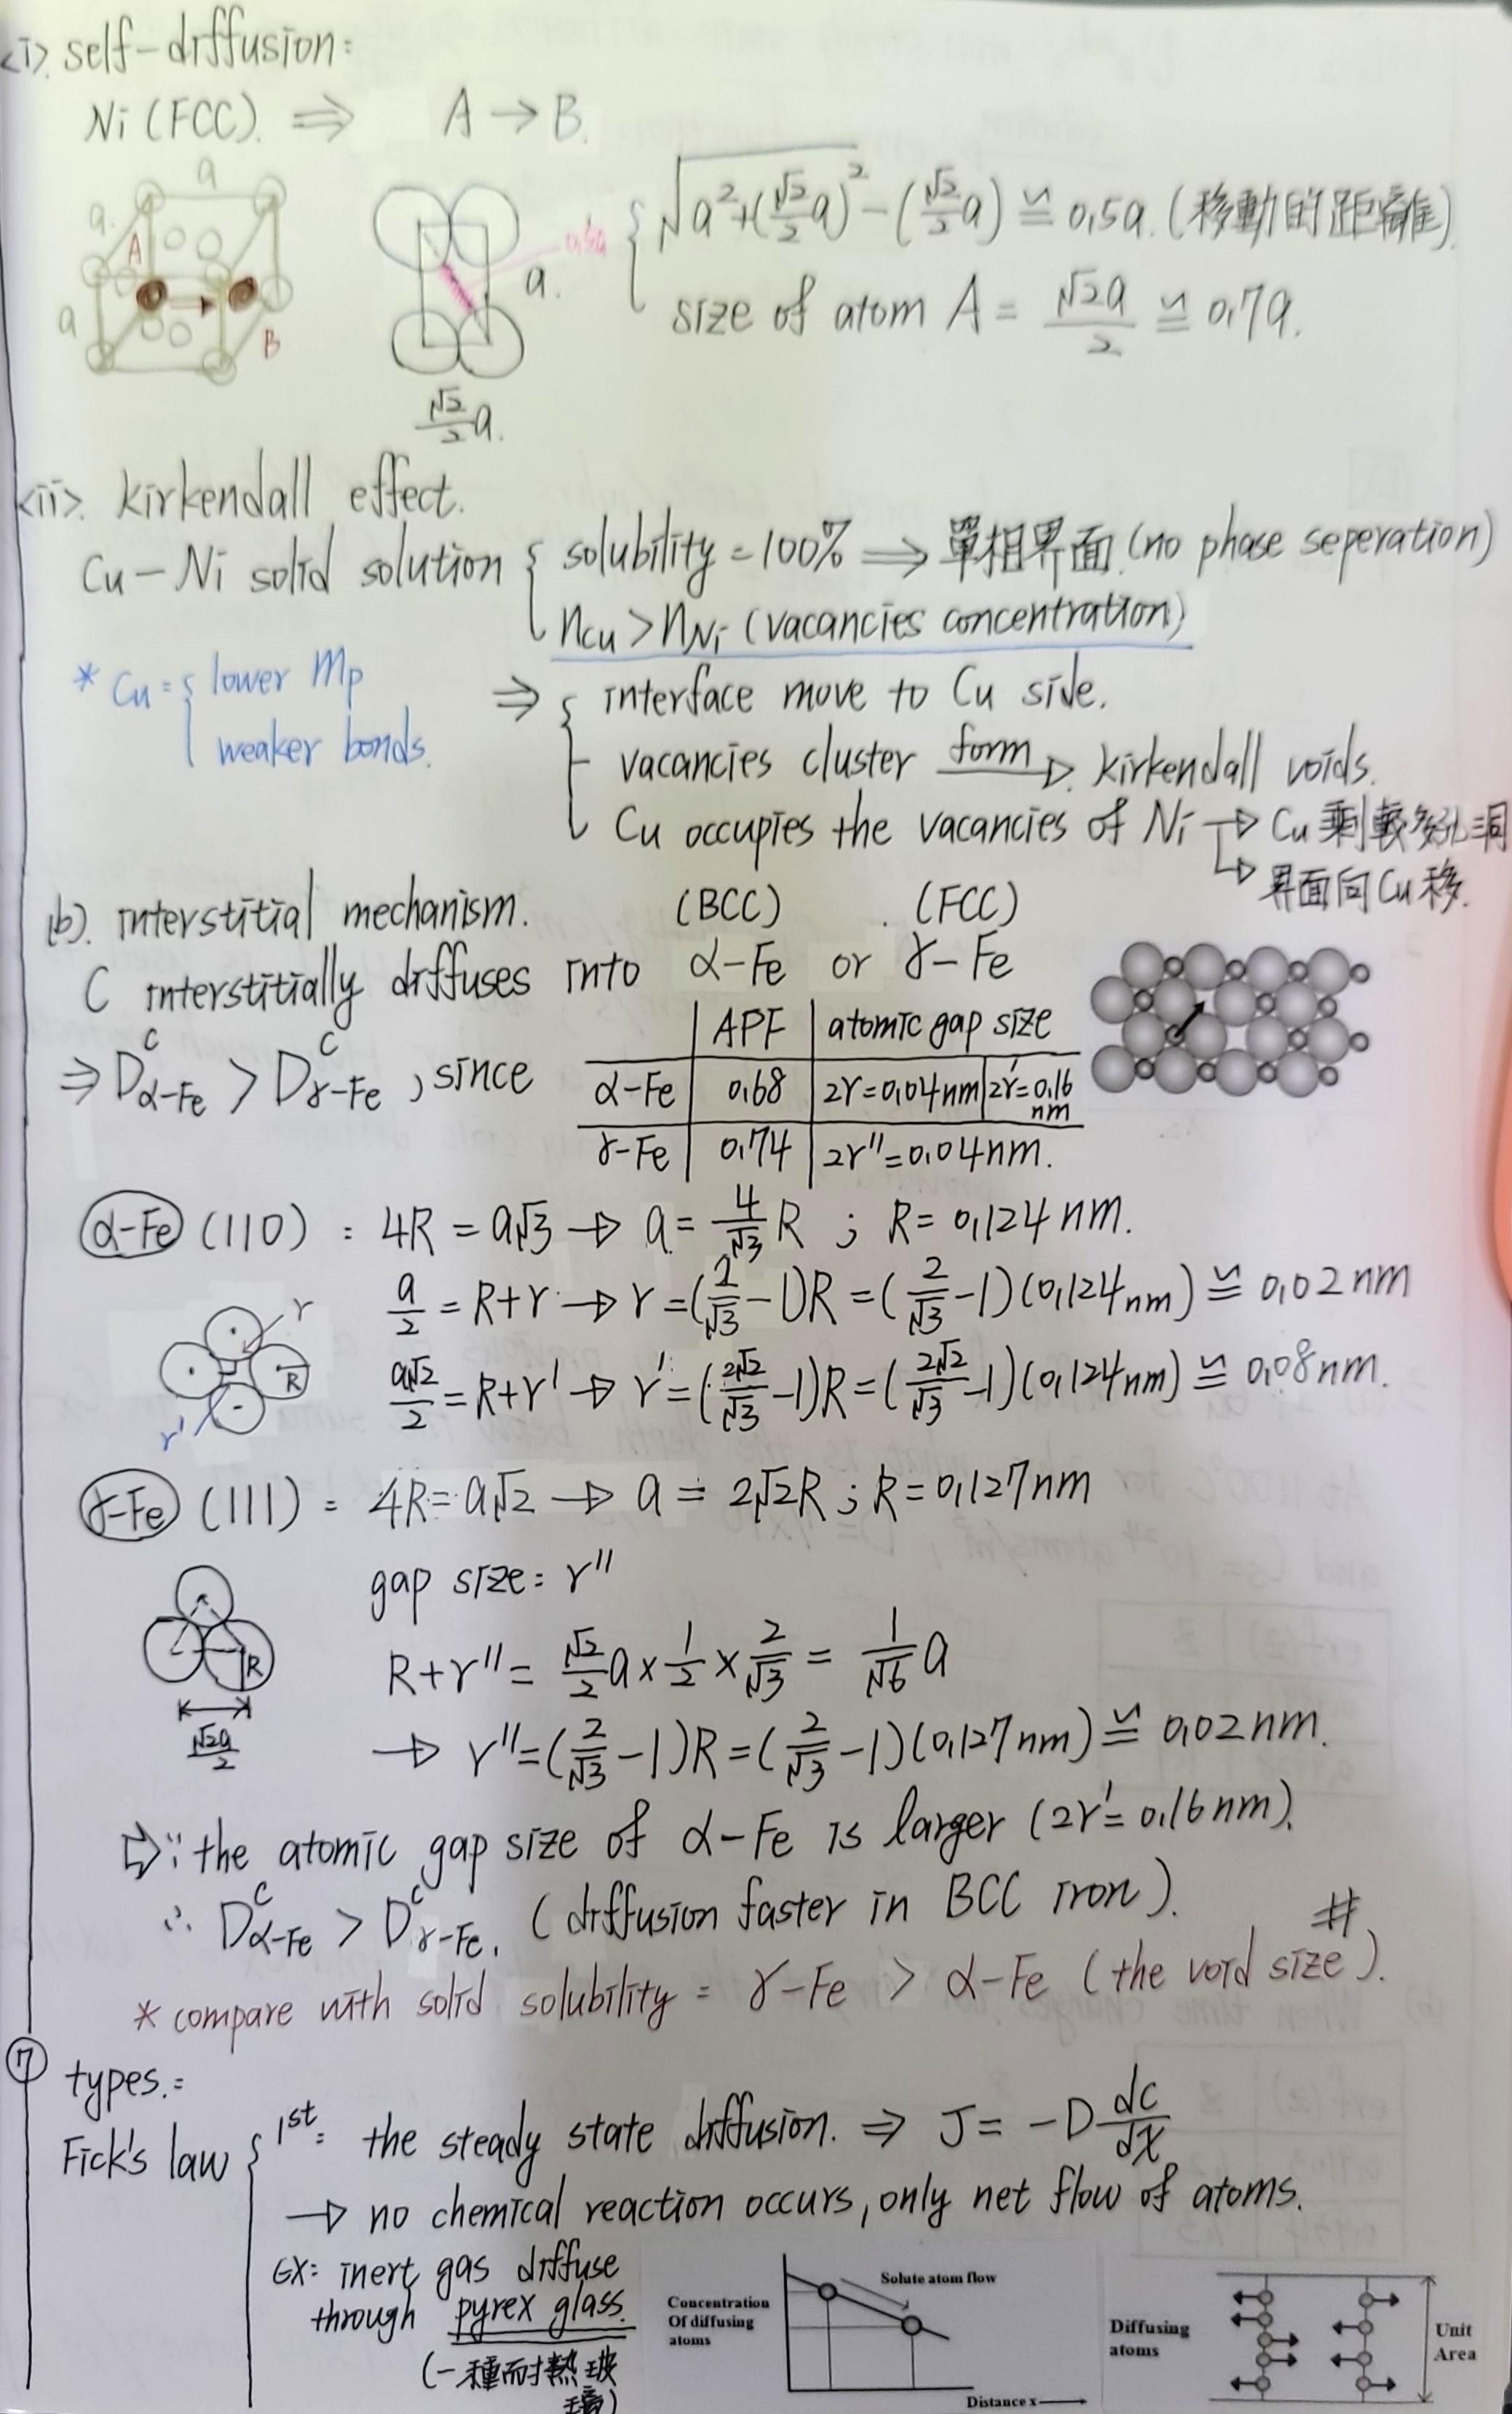 <i>. self-diffusion:
Ni (FCC). ⇒ A → B.
a
a.
A
a
B
0.5a
a.
√2/2 a.
√(a²+(√2/2 a)²) - (√2/2 a) ≌ 0.5a. (移動的距離).
size of atom A = √2a/2 ≌ 0.7a.
<ii>. kirkendall effect.
Cu-Ni solid solution { solubility = 100% ⇒ 單相界面. (no phase seperation)
nCu > nNi (vacancies concentration)
* Cu = { lower Mp
weaker bonds.
⇒ { interface move to Cu side.
vacancies cluster form → kirkendall voids.
Cu occupies the vacancies of Ni → Cu 剩較多孔洞
→ 界面向Cu移.
(b). interstitial mechanism. (BCC) (FCC)
C interstitially diffuses into α-Fe or γ-Fe
⇒ D^C_α-Fe > D^C_γ-Fe, since
APF | atomic gap size
α-Fe | 0.68 | 2r=0.04nm | 2r'=0.16 nm
γ-Fe | 0.74 | 2r''=0.04nm.
α-Fe (110) : 4R = a√3 → a = 4/√3 R ; R = 0.124 nm.
a/2 = R+r → r = (2/√3 - 1)R = (2/√3 - 1)(0.124nm) ≌ 0.02 nm
a√2/2 = R+r' → r' = (2√2/√3 - 1)R = (2√2/√3 - 1)(0.124nm) ≌ 0.08nm.
r
R
r'
γ-Fe (111) = 4R = a√2 → a = 2√2R ; R = 0.127nm
gap size: r''
R
√2a/2
R+r'' = √2/2 a × 1/2 × 2/√3 = 1/√6 a
→ r'' = (2/√3 - 1)R = (2/√3 - 1)(0.127nm) ≌ 0.02nm.
⇨ ∵ the atomic gap size of α-Fe is larger (2r' = 0.16nm).
∴ D^C_α-Fe > D^C_γ-Fe. (diffusion faster in BCC iron). #
* compare with solid solubility = γ-Fe > α-Fe (the void size).
⑦ types.:
Fick's law { 1st: the steady state diffusion. ⇒ J = -D dc/dx
→ no chemical reaction occurs, only net flow of atoms.
Ex: inert gas diffuse
through pyrex glass.
(一種耐熱玻
璃)
Concentration
Of diffusing
atoms
Solute atom flow
Distance x
Diffusing
atoms
Unit
Area